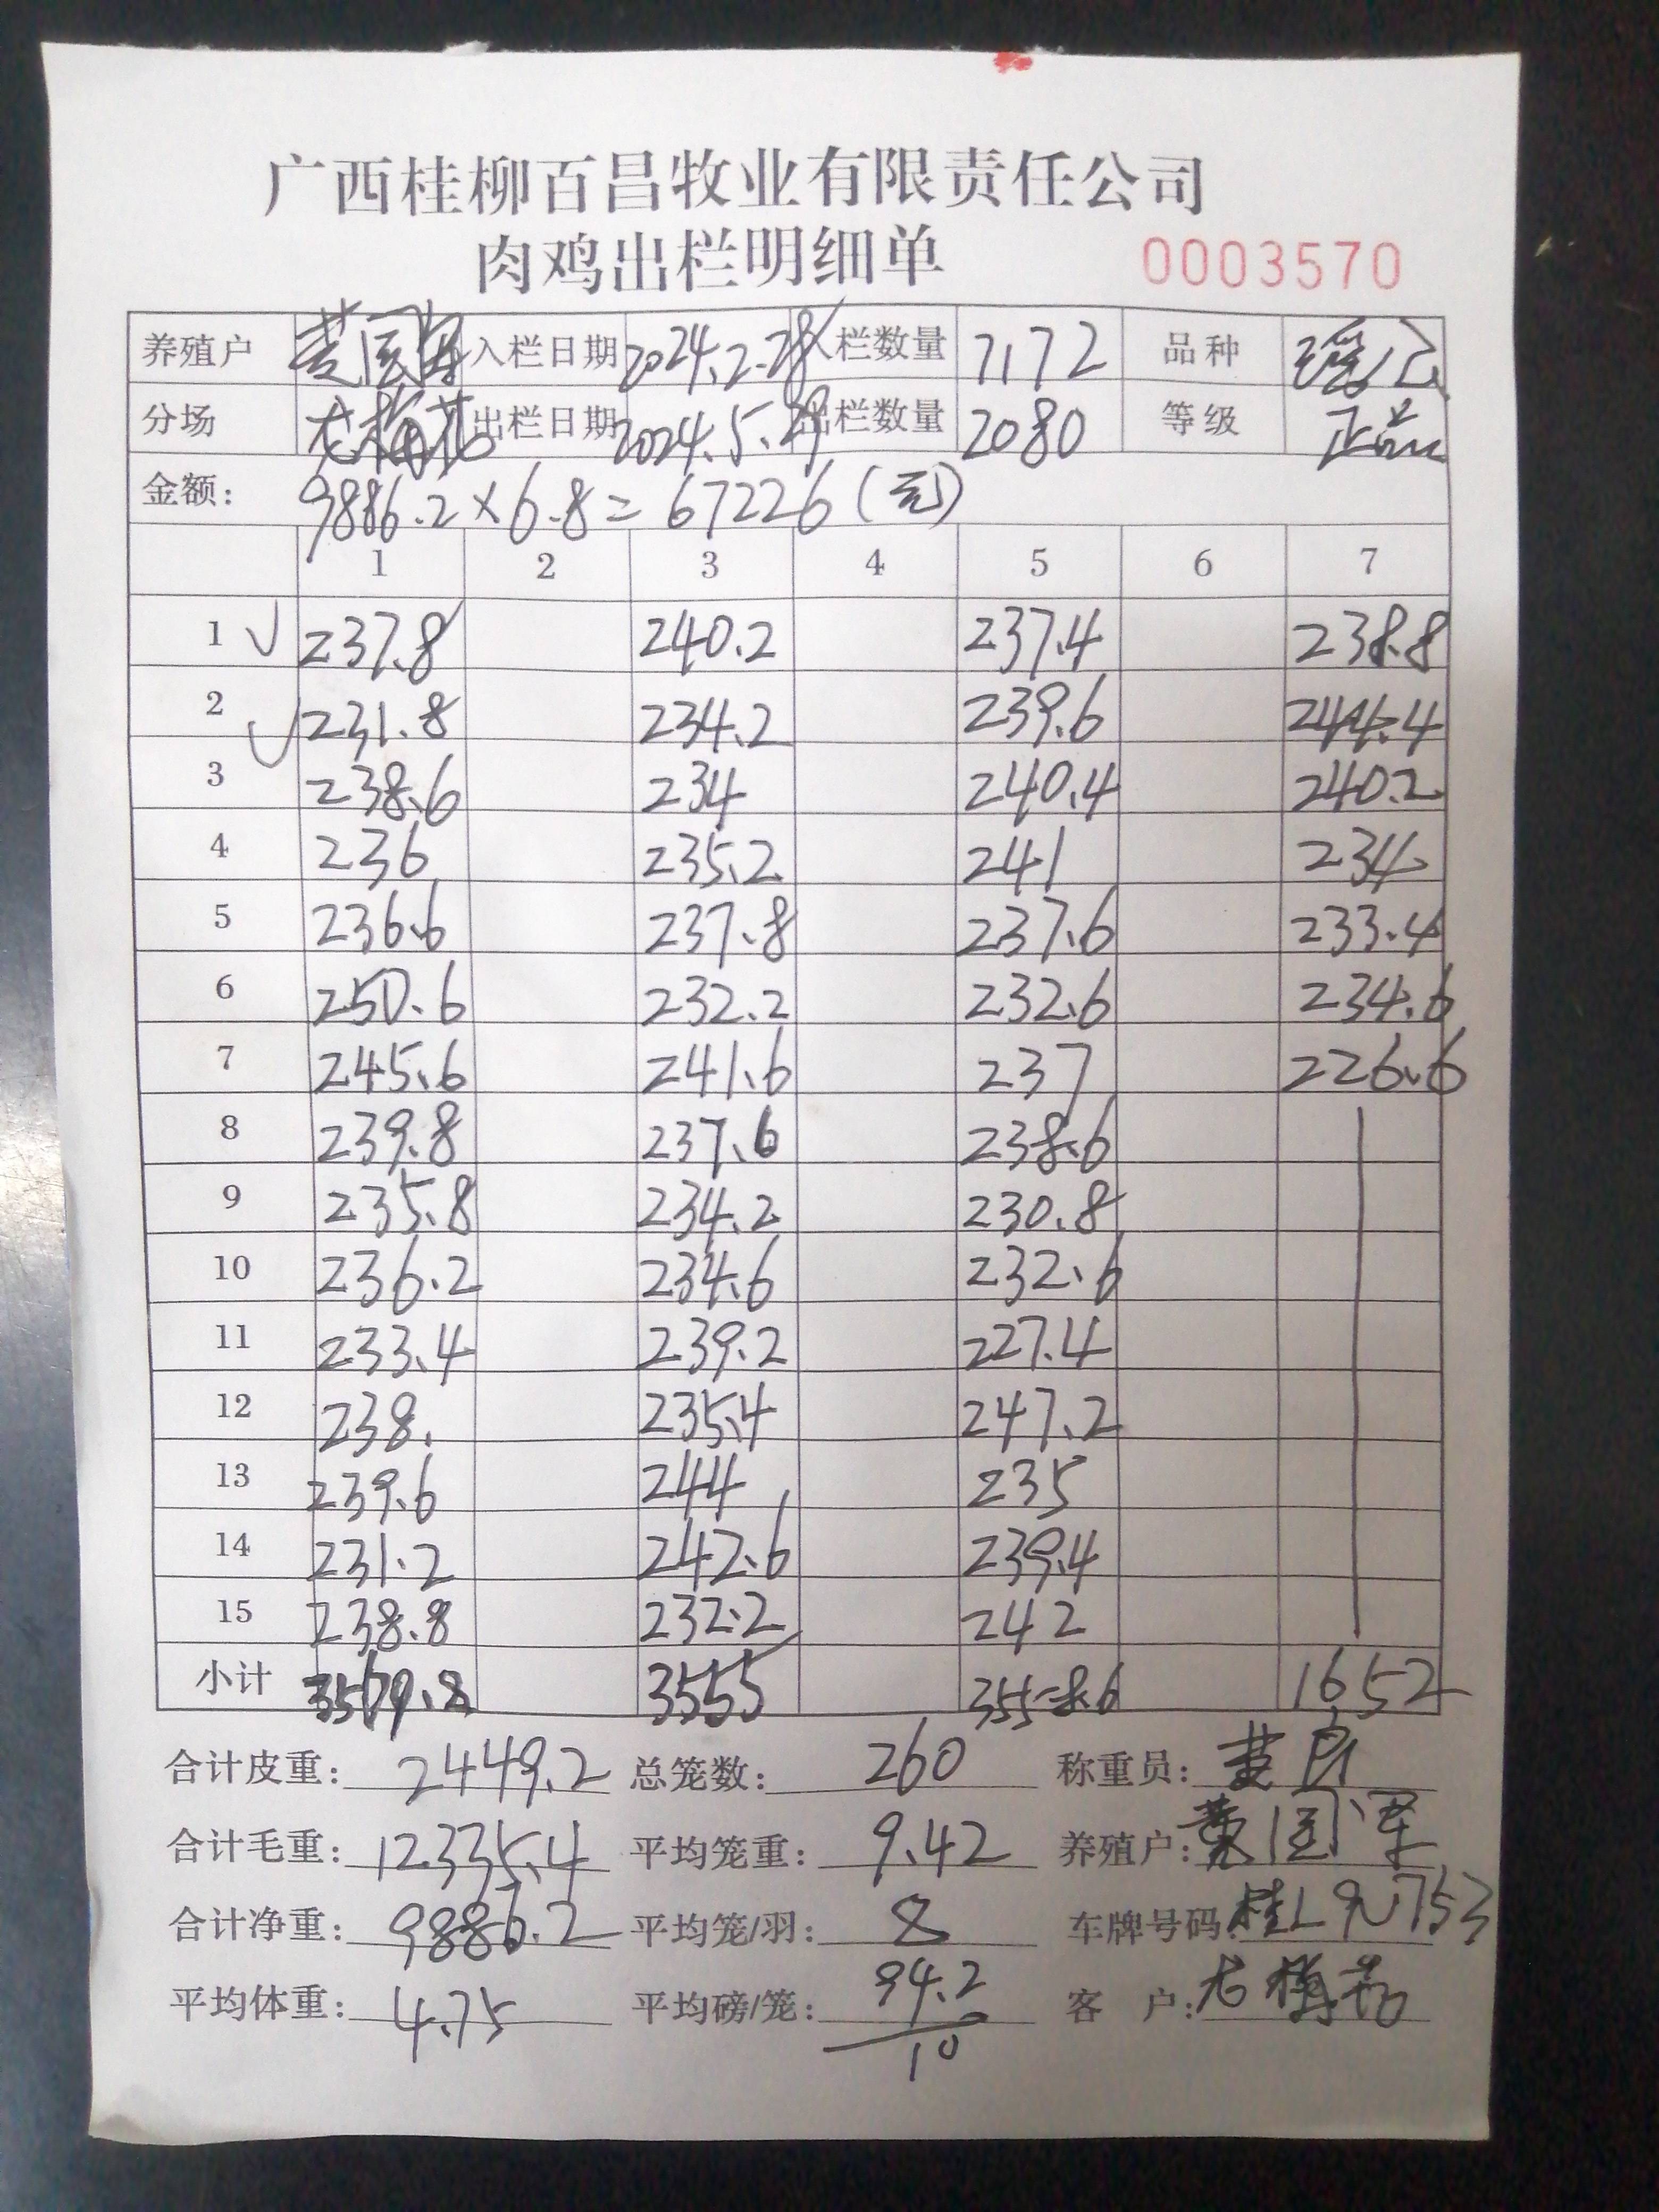 广西桂柳百昌牧业有限责任公司
肉鸡出栏明细单 0003570
养殖户 黄国军 入栏日期 2024.2.28 入栏数量 7172 品种 瑶公
分场 出栏日期 2024.5.29 出栏数量 2080 等级 正品
金额: 9886.2×6.8=67226(元)
1 2 3 4 5 6 7
1 237.8 240.2 237.4 238.8
2 231.8 234.2 239.6 244.4
3 238.6 234 240.4 240.2
4 236 235.2 241 234
5 236.6 237.8 237.6 233.4
6 250.6 232.2 232.6 234.6
7 245.6 241.6 237 226.6
8 239.8 237.6 238.6
9 235.8 234.2 230.8
10 236.2 234.6 232.6
11 233.4 239.2 227.4
12 238. 235.4 247.2
13 239.6 244 235
14 231.2 242.6 239.4
15 238.8 232.2 242
小计 3569.8 3555 3558.6 1652
合计皮重: 2449.2 总笼数: 260 称重员: 黄
合计毛重: 12335.4 平均笼重: 9.42 养殖户: 黄国军
合计净重: 9886.2 平均笼/羽: 8 车牌号码 桂L9N753
平均体重: 4.75 平均磅/笼: 94.2 客 户:
10